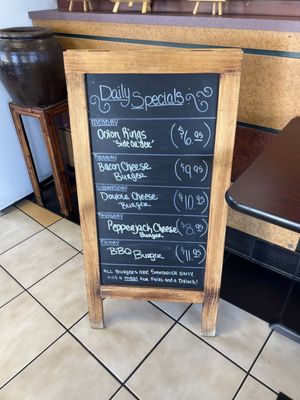 Daily Specials
MONDAY
Onion Rings
"Side order"
($6.95)
TUESDAY
Bacon Cheese
Burger
($9.95)
WEDNESDAY
Double Cheese
Burger
($10.95)
THURSDAY
Pepperjack Cheese
Burger
($8.95)
FRIDAY
BBQ Burger
($11.95)
ALL BURGERS ARE SANDWICH ONLY
MEAL FOR FRIES AND A DRINK!